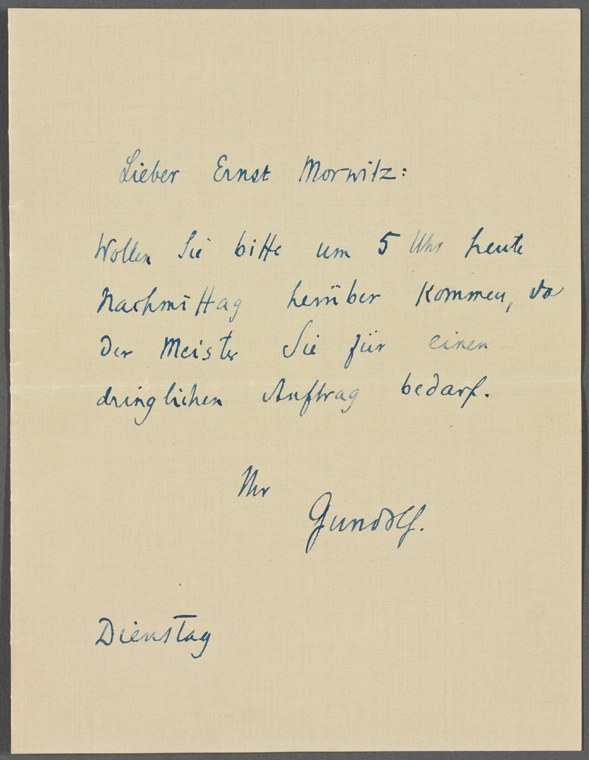 Lieber Ernst Morwitz:
Wollen Sie bitte um 5 Uhr heute
Nachmittag herüber kommen, da
der Meister Sie für einen
dringlichen Auftrag bedarf.
Ihr
Gundolf.
Dienstag